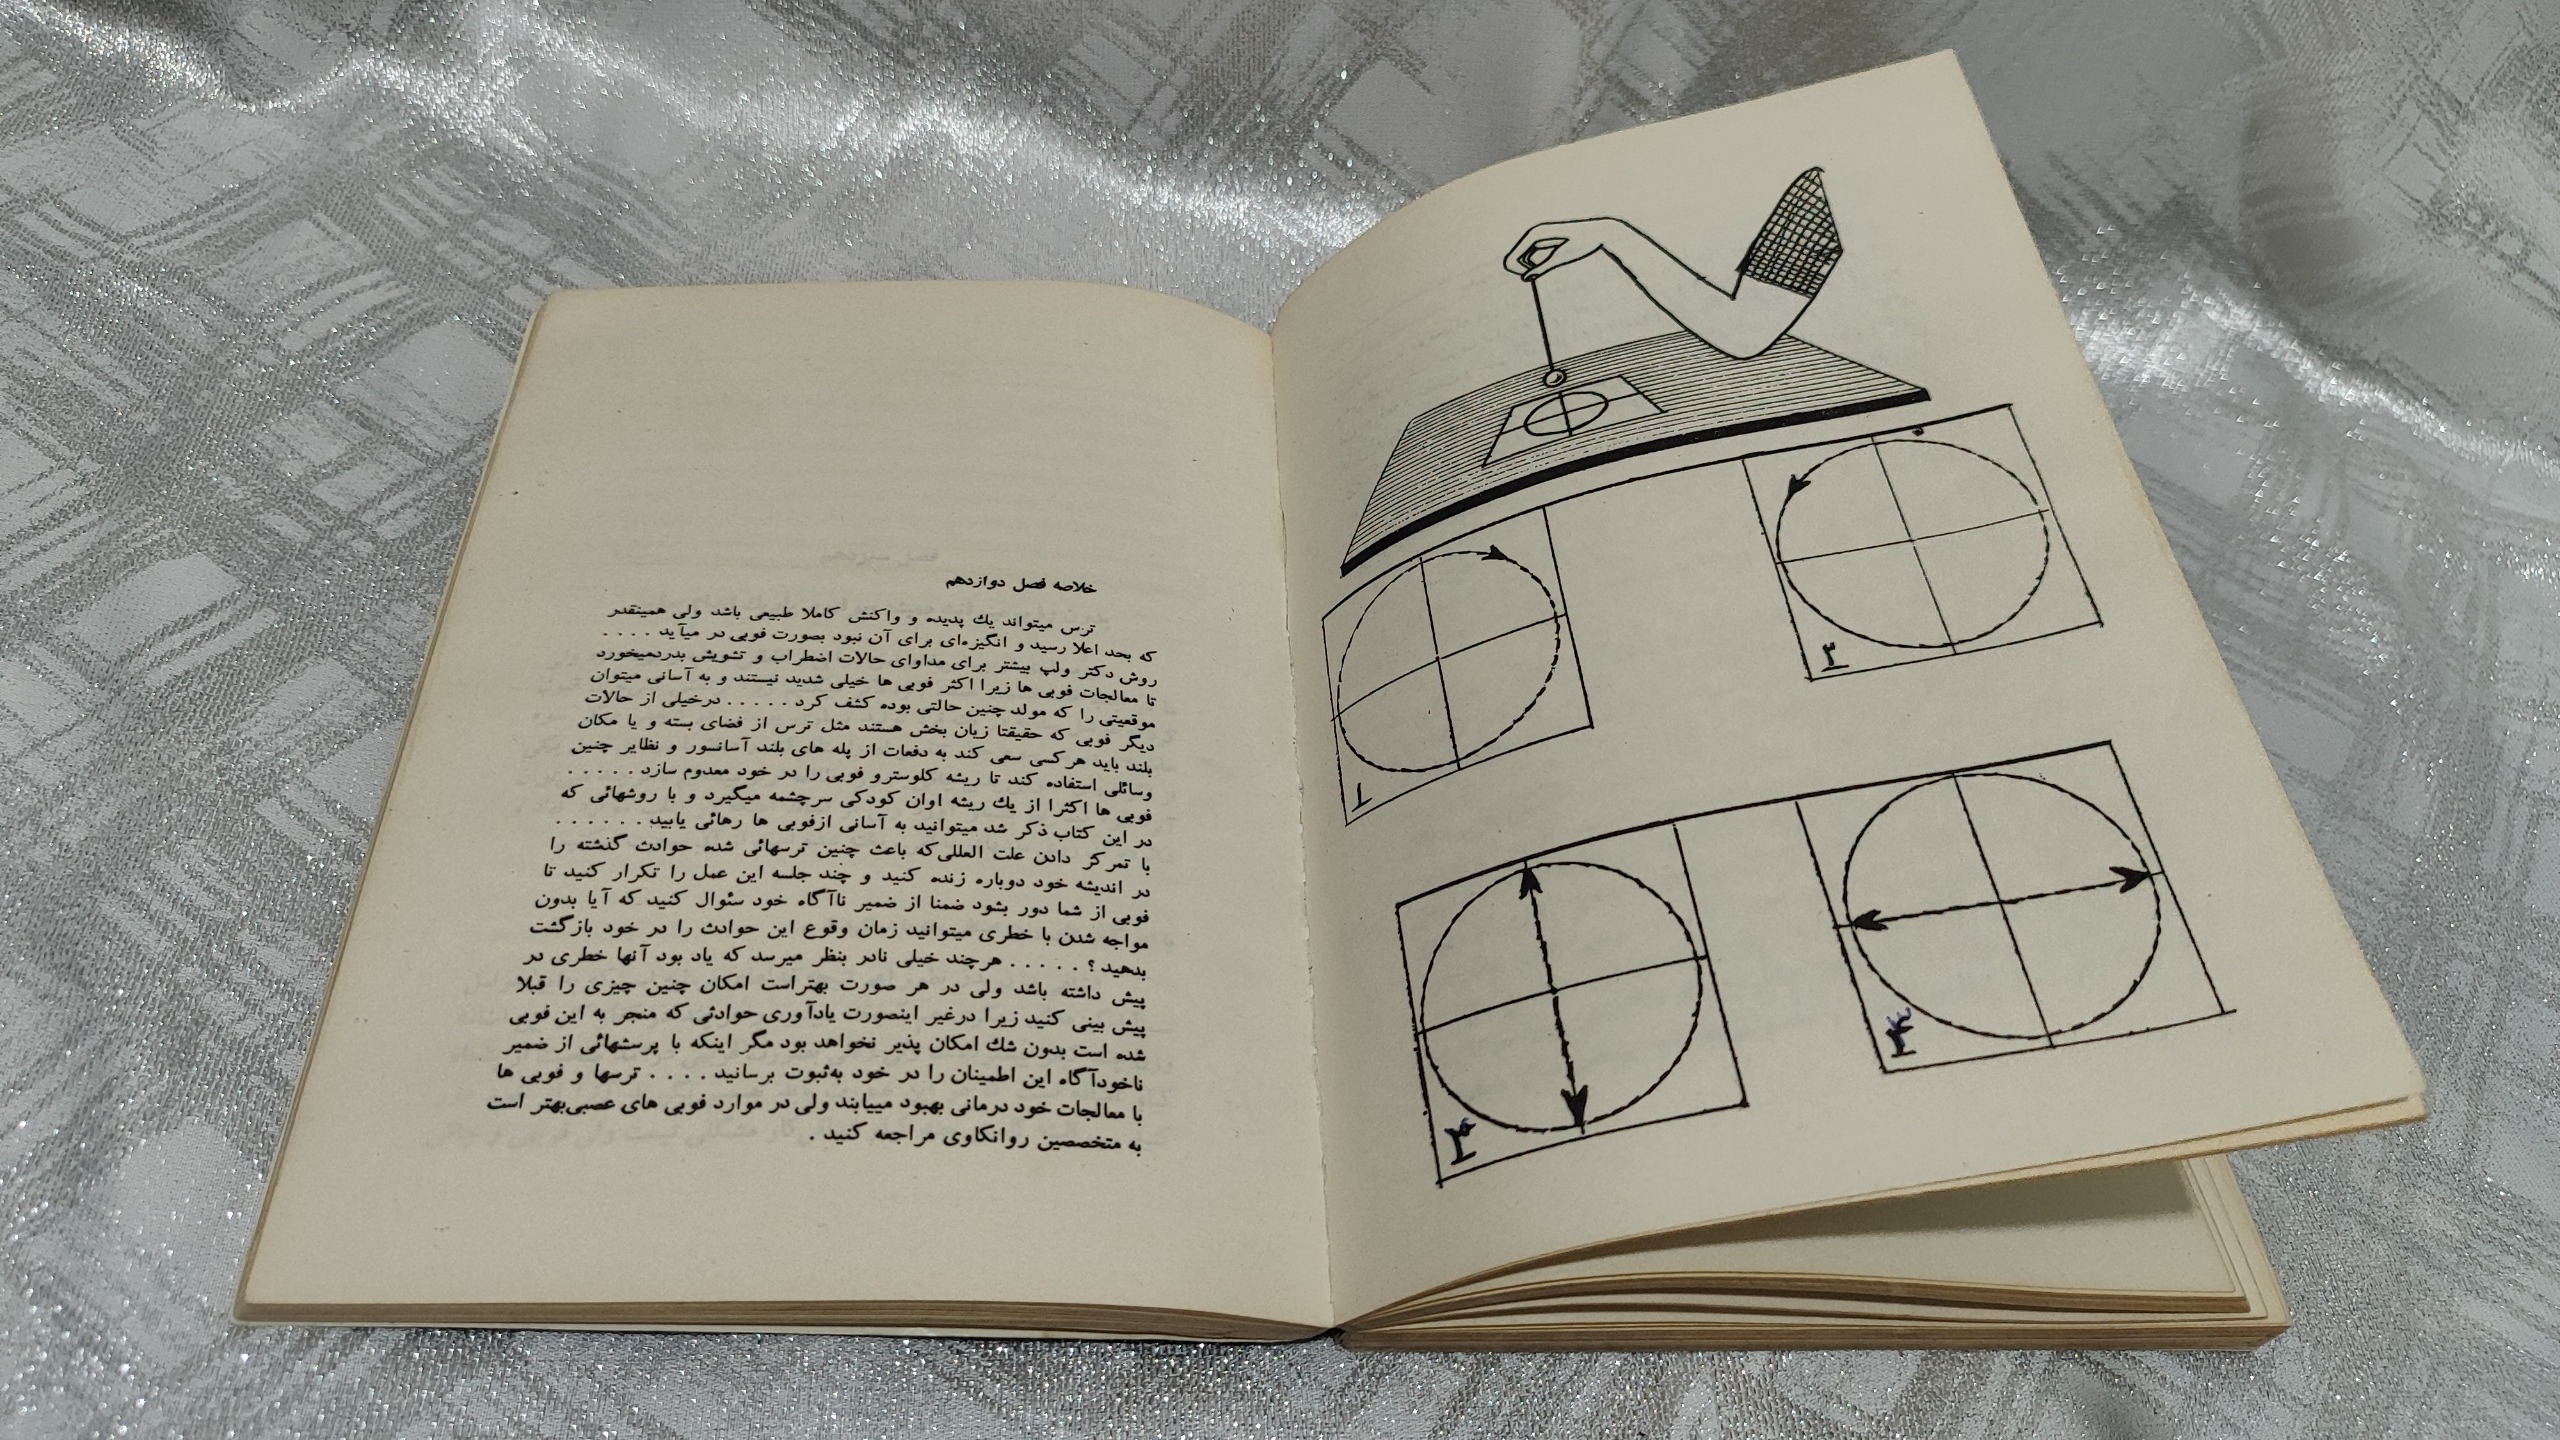 خلاصه فصل دوازدهم
ترس میتواند یك پدیده و واکنش کاملا طبیعی باشد ولی همینقدر
که بحد اعلا رسید و انگیزه‌ای برای آن نبود بصورت فوبی در میآید . . . .
روش دکتر ولپ بیشتر برای مداوای حالات اضطراب و تشویش بدردمیخورد
تا معالجات فوبی ها زیرا اکثر فوبی ها خیلی شدید نیستند و به آسانی میتوان
موقعیتی را که مولد چنین حالتی بوده کشف کرد . . . . . درخیلی از حالات
دیگر فوبی که حقیقتا زیان بخش هستند مثل ترس از فضای بسته و یا مکان
بلند باید هرکسی سعی کند به دفعات از پله های بلند آسانسور و نظایر چنین
وسائلی استفاده کند تا ریشه کلوسترو فوبی را در خود معدوم سازد . . . . .
فوبی ها اکثرا از یك ریشه اوان کودکی سرچشمه میگیرد و با روشهائی که
در این کتاب ذکر شد میتوانید به آسانی ازفوبی ها رهائی یابید . . . . . .
با تمرکز دادن علت العللی‌که باعث چنین ترسهائی شده حوادث گذشته را
در اندیشه خود دوباره زنده کنید و چند جلسه این عمل را تکرار کنید تا
فوبی از شما دور بشود ضمنا از ضمیر ناآگاه خود سئوال کنید که آیا بدون
مواجه شدن با خطری میتوانید زمان وقوع این حوادث را در خود بازگشت
بدهید ؟ . . . . . هرچند خیلی نادر بنظر میرسد که یاد بود آنها خطری در
پیش داشته باشد ولی در هر صورت بهتراست امکان چنین چیزی را قبلا
پیش بینی کنید زیرا درغیر اینصورت یادآوری حوادثی که منجر به این فوبی
شده است بدون شك امکان پذیر نخواهد بود مگر اینکه با پرسشهائی از ضمیر
ناخودآگاه این اطمینان را در خود به‌ثبوت برسانید . . . . ترسها و فوبی ها
با معالجات خود درمانی بهبود مییابند ولی در موارد فوبی های عصبی‌بهتر است
به متخصصین روانکاوی مراجعه کنید .
۲
۱
۴
۳